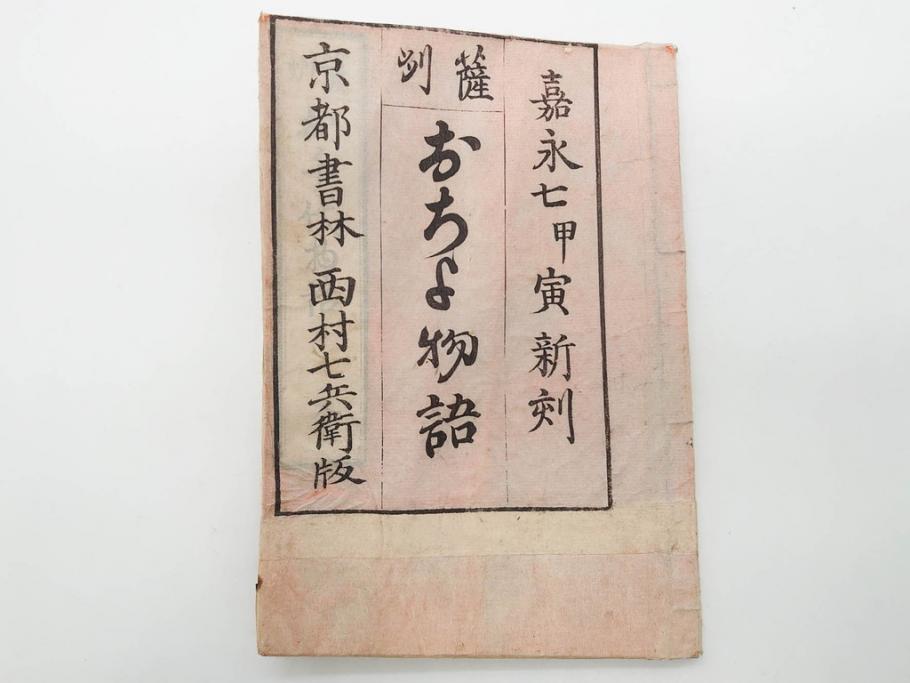 嘉永七甲寅新刻
薩刕
おちよ物語
京都書林 西村七兵衛版